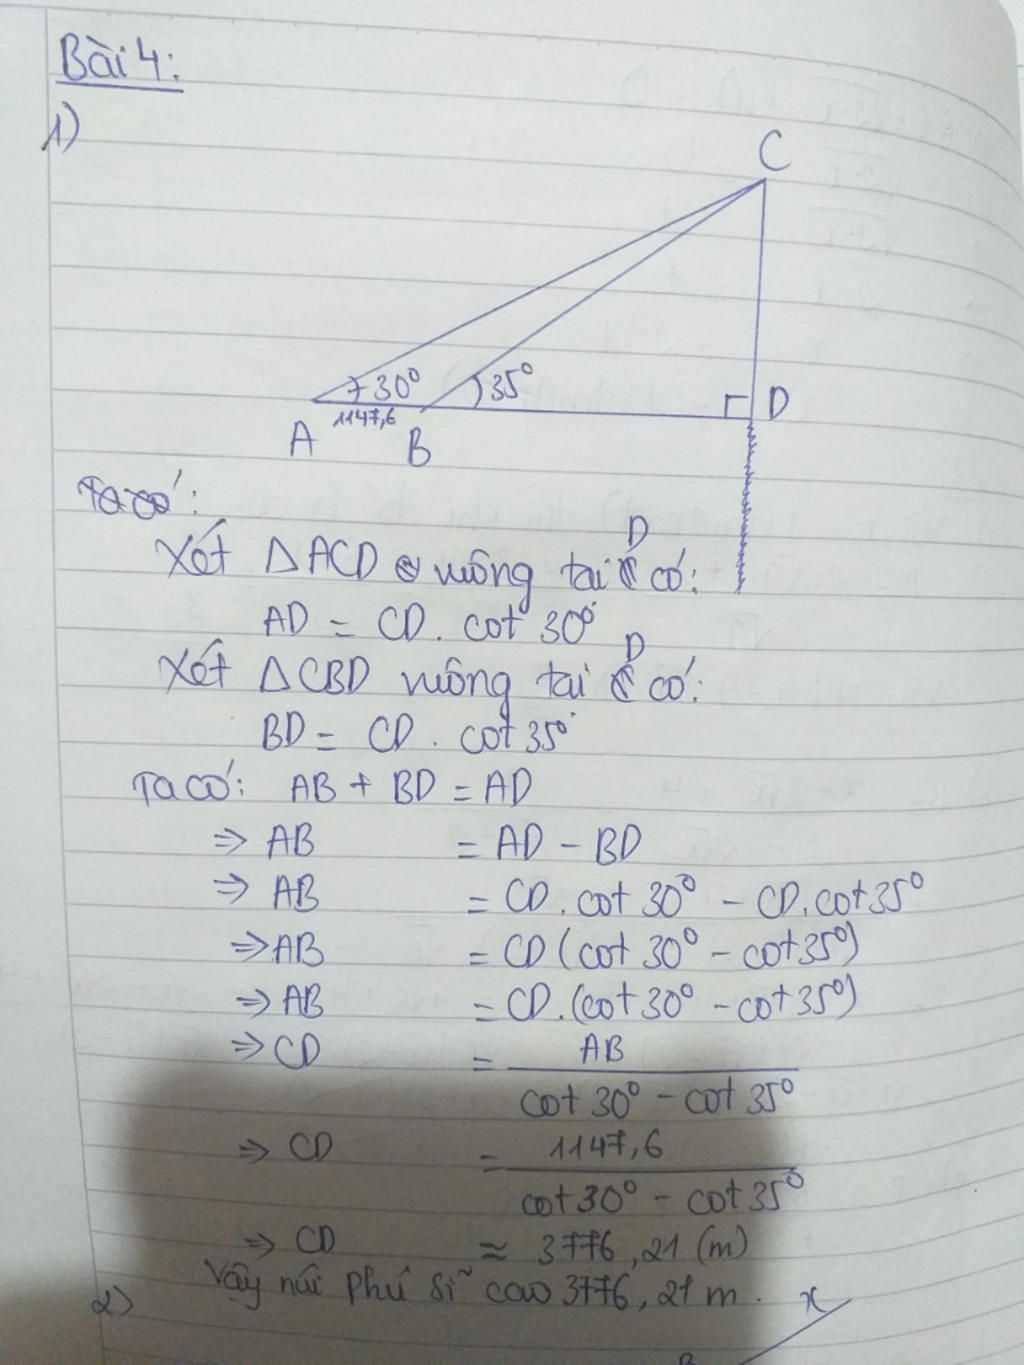 Bài 4:
1)
C
30°
35°
D
1147,6
A
B
Ta có:
Xét △ACD vuông tại D có:
AD = CD. cot 30°
Xét △CBD vuông tại D có:
BD = CD. cot 35°
Ta có: AB + BD = AD
⇒ AB = AD - BD
⇒ AB = CD. cot 30° - CD. cot 35°
⇒ AB = CD (cot 30° - cot 35°)
⇒ AB = CD. (cot 30° - cot 35°)
⇒ CD = AB
cot 30° - cot 35°
⇒ CD = 1147,6
cot 30° - cot 35°
⇒ CD ≈ 3776,21 (m)
Vậy núi Phú Sĩ cao 3776,21 m.
2)
x
B